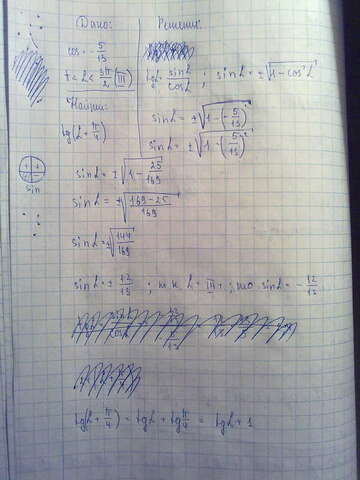 Дано:
cos = - 5/13
π < L < 3π/2 (III)
Найти:
tg(L + π/4)
Решение:
tgL = sinL/cosL ; sinL = ±√(1 - cos²L)
sinL = ±√(1 - (- 5/13)²)
sinL = ±√(1 - (5/13)²)
sin
sinL = ±√(1 - 25/169)
sinL = ±√((169 - 25)/169)
sinL = ±√(144/169)
sinL = ± 12/13 ; т.к. L = III ч ; то sinL = - 12/13
tg(L + π/4) = tgL + tg π/4 = tgL + 1